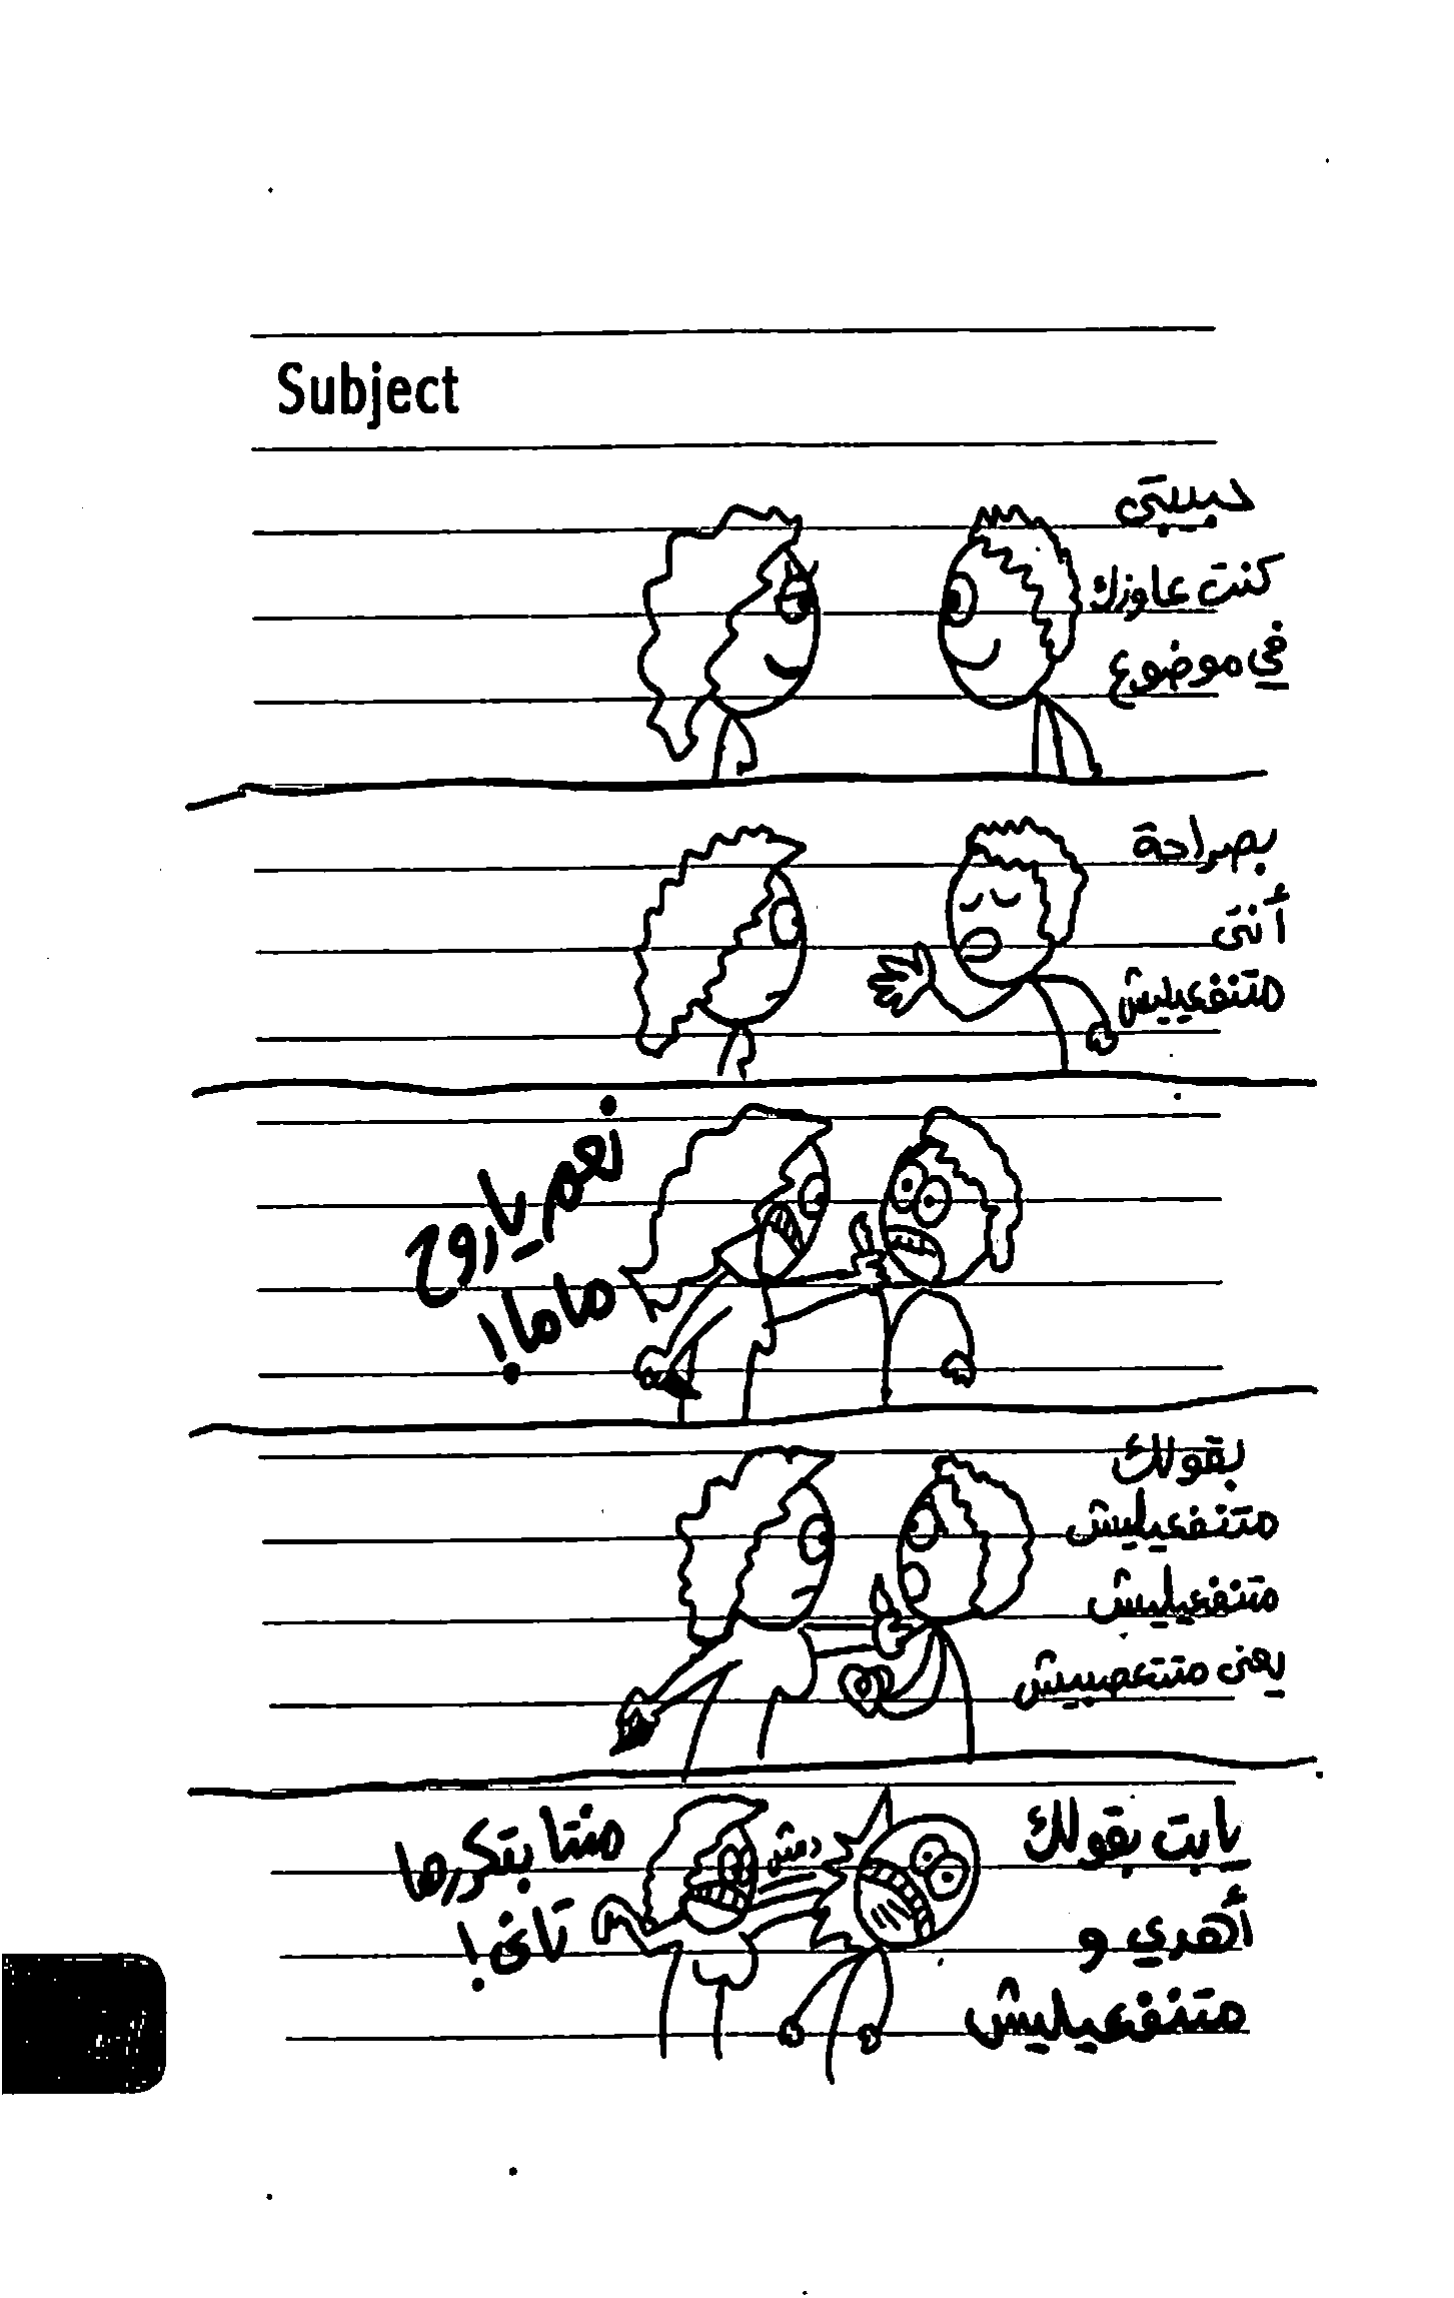 Subject
حبيبتي
كنت عاوزك
في موضوع
بصراحة
أنتي
متنفعيليش
نعم يا روح
ماما!
بقولك
متنفعيليش
متنفعيليش
يعني متتعصبيش
يابت بقولك
أهدي و
متنفعيليش
دمش
منتا بتكررها
تاني!